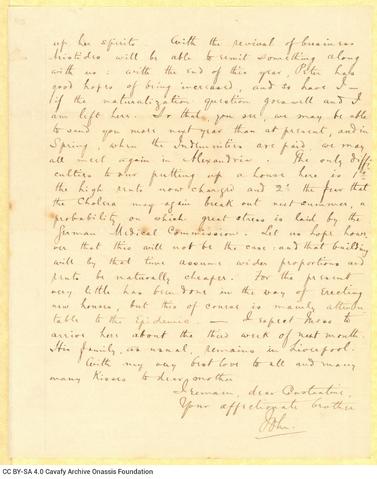 up her spirits. With the revival of business
Aristides will be able to remit something along
with us: with the end of this year, Peter has
good hopes of being increased, and so have I —
if the naturalization question goes well and I
am left here. So that, you see, we may be able
to send you more next year than at present, and in
Spring, when the Indemnities are paid, we may
all meet again in Alexandria. The only diffi
culties to our putting up a house here is
the high rents now charged and 2º the fear that
the Cholera may again break out next summer, a
probability on which great stress is laid by the
German Medical Commission. Let us hope how
ever that this will not be the case: and that building
will by that time assume wider proportions and
rents be naturally cheaper. For the present
very little has been done in the way of erecting
new houses, but this of course is mainly attribu
table to the Epidemic. — I expect
arrive here about the third week of next month.
His family, as usual, remains in Liverpool.
With my very best love to all and many
many kisses to dear mother
I remain, dear Constantine,
Your affectionate brother
John
CC BY-SA 4.0 Cavafy Archive Onassis Foundation